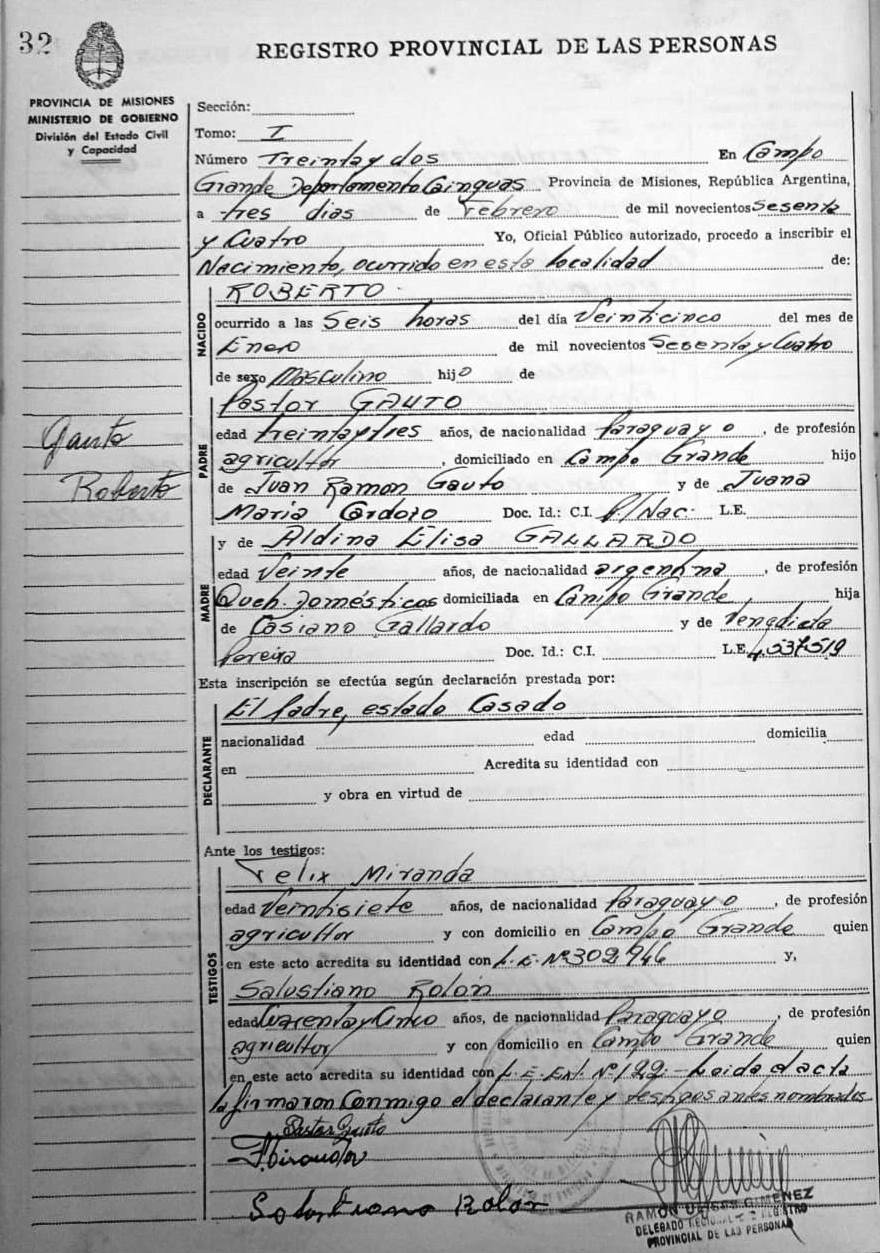 32
REGISTRO PROVINCIAL DE LAS PERSONAS
PROVINCIA DE MISIONES
MINISTERIO DE GOBIERNO
División del Estado Civil
y Capacidad
Gauto
Roberto
Sección:
Tomo: I
Número Treinta y dos En Campo
Grande Departamento Cainguas Provincia de Misiones, República Argentina,
a tres dias de Febrero de mil novecientos Sesenta
y Cuatro Yo, Oficial Público autorizado, procedo a inscribir el
Nacimiento, ocurrido en esta localidad de:
NACIDO
ROBERTO.
ocurrido a las Seis horas del día Veinticinco del mes de
Enero de mil novecientos Sesenta y Cuatro
de sexo Masculino hijo de
PADRE
Pastor GAUTO
edad treinta y tres años, de nacionalidad Paraguayo, de profesión
agricultor, domiciliado en Campo Grande hijo
de Juan Ramon Gauto y de Juana
Maria Cardozo Doc. Id.: C.I. P/Nac. L.E.
MADRE
y de Aldina Elisa GALLARDO
edad Veinte años, de nacionalidad argentina, de profesión
Queh. Domésticos domiciliada en Campo Grande, hija
de Casiano Gallardo y de Venedicta
Pereira Doc. Id.: C.I. L.E. 4.537519
Esta inscripción se efectúa según declaración prestada por:
DECLARANTE
El Padre, estado Casado
nacionalidad edad domicilia
en Acredita su identidad con
y obra en virtud de
Ante los testigos:
TESTIGOS
Felix Miranda
edad Veintisiete años, de nacionalidad Paraguayo, de profesión
agricultor y con domicilio en Campo Grande quien
en este acto acredita su identidad con L.E. Nº 302946 y,
Salustiano Rolón
edad Cuarenta y Cinco años, de nacionalidad Paraguayo, de profesión
agricultor y con domicilio en Campo Grande quien
en este acto acredita su identidad con L.E. Ext. Nº 122.- Leida el acta
la firmaron Conmigo el declarante y testigos antes nombrados
Pastor Gauto
F Miranda
Salustiano Rolón
RAMÓN ULISES GIMENEZ
DELEGADO REGISTRO
PROVINCIAL DE LAS PERSONAS